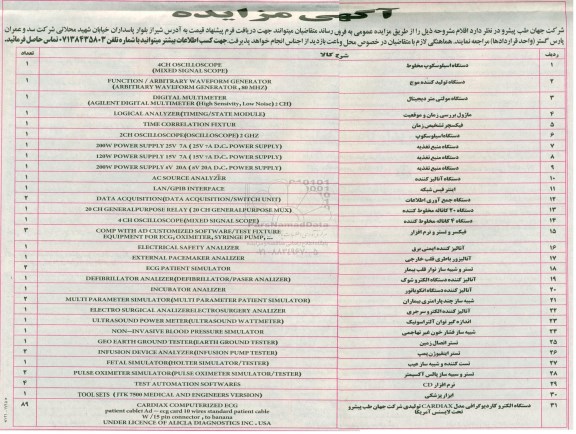 آگهی مزایده
شرکت جهان طب پیشرو در نظر دارد اقلام مشروحه ذیل را از طریق مزایده عمومی به فروش رساند متقاضیان میتوانند جهت دریافت فرم پیشنهاد قیمت به آدرس شیراز بلوار پاسداران خیابان شهید محلاتی شرکت سد و عمران
پارس گستر (واحد قراردادها) مراجعه نمایند. هماهنگی لازم با متقاضیان در خصوص محل و ساعت بازدید از اجناس انجام خواهد پذیرفت. جهت کسب اطلاعات بیشتر میتوانید با شماره تلفن ۰۷۱۳۸۴۳۵۸۰۳ تماس حاصل فرمائید.
ردیف شرح کالا تعداد
۱ دستگاه اسیلوسکوپ مخلوط 4CH OSCILLOSCOPE (MIXED SIGNAL SCOPE) ۱
۲ دستگاه تولید کننده موج FUNCTION / ARBITRARY WAVEFORM GENERATOR (ARBITRARY WAVEFORM GENERATOR , 80 MHZ) ۱
۳ دستگاه مولتی متر دیجیتال DIGITAL MULTIMETER (AGILENT DIGITAL MULTIMETER (High Sensivity, Low Noise) : CH) ۱
۴ ماژول بررسی زمان و موقعیت LOGICAL ANALYZER(TIMING/STATE MODULE) ۱
۵ فیکسچر تشخیص زمان TIME CORRELATION FIXTUR ۱
۶ دستگاه اسیلوسکوپ 2CH OSCILLOSCOPE(OSCILLOSCOPE) 2 GHZ ۱
۷ دستگاه منبع تغذیه 200W POWER SUPPLY 25V 7A ( 25V 7A D.C. POWER SUPPLY) ۱
۸ دستگاه منبع تغذیه 120W POWER SUPPLY ۱
۹ دستگاه منبع تغذیه 200W POWER SUPPLY 6V 20A ( 6V 20A D.C. POWER SUPPLY) ۱
۱۰ دستگاه آنالیز کننده AC SOURCE ANALYZER ۱
۱۱ اینتر فیس شبکه LAN/GPIB INTERFACE ۱
۱۲ دستگاه جمع آوری اطلاعات DATA ACQUISITION(DATA ACQUISITION/SWITCH UNIT) ۲
۱۳ دستگاه ۲۰ کاناله مخلوط کننده 20 CH GENERALPURPOSE RELAY ( 20 CH GENERALPURPOSE MUX)
۱۴ دستگاه ۴ کاناله مخلوط کننده 4 CH OSCILLOSCOPE(MIXED SIGNAL SCOPE) ۱
۱۵ فیکسر و تستر و نرم افزار COMP WITH AD CUSTOMIZED SOFTWARE/TEST FIXTURE EQUIPMENT FOR ECG, OXIMETER, SYRINGE PUMP, ... ۳
۱۶ آنالیز کننده ایمنی برق ELECTRICAL SAFETY ANALIZER ۱
۱۷ آنالیزور باطری قلب خارجی EXTERNAL PACEMAKER ANALIZER ۱
۱۸ تستر و شبیه ساز نوار قلب بیمار ECG PATIENT SIMULATOR ۲
۱۹ آنالیز کننده دستگاه الکترو شوک DEFIBRILLATOR ANALIZER(DEFIBRILLATOR/PASER ANALIZER) ۱
۲۰ آنالیز کننده دستگاه انکوباتور INCUBATOR ANALIZER ۱
۲۱ شبیه ساز چند پارامتری بیماران MULTI PARAMETER SIMULATOR(MULTI PARAMETER PATIENT SIMULATOR) ۲
۲۲ آنالیز کننده الکترو سرجری ELECTRO SURGICAL ANALIZERELECTROSURGERY ANALIZER ۱
۲۳ اندازه گیر توان آلتراسونیک ULTRASOUND POWER METER(ULTRASOUND WATEMETER) ۱
۲۴ شبیه ساز فشار خون غیر تهاجمی NON-INVASIVE BLOOD PRESSURE SIMULATOR ۱
۲۵ تستر اتصال زمین GEO EARTH GROUND TESTER(EARTH GROUND TESTER) ۱
۲۶ تستر اینفیوژن پمپ INFUSION DEVICE ANALYZER(INFUSION PUMP TESTER) ۲
۲۷ تست کننده و شبیه ساز جنین FETAL SIMULATOR(HOLTER SIMULATOR/TESTER) ۱
۲۸ تستر و شبیه ساز پالس اکسیمتر PULSE OXIMETER SIMULATOR(PULSE OXIMETER SIMULATOR/TESTER) ۲
۲۹ نرم افزار CD TEST AUTOMATION SOFTWARES ۴
۳۰ ابزار پزشکی TOOL SETS ( JTK 7500 MEDICAL AND ENGINEERS VERSION) ۱
۳۱ دستگاه الکترو کاردیوگرافی مدل CARDIAX تولیدی شرکت جهان طب پیشرو تحت لایسنس آمریکا CARDIAX COMPUTERIZED ECG ۸۹
patient cablet Ad – ecg card 10 wires standard patient cable
W / 15 pin connector , to banana
UNDER LICENCE OF ALICLA DIAGNOSTICS INC . USA